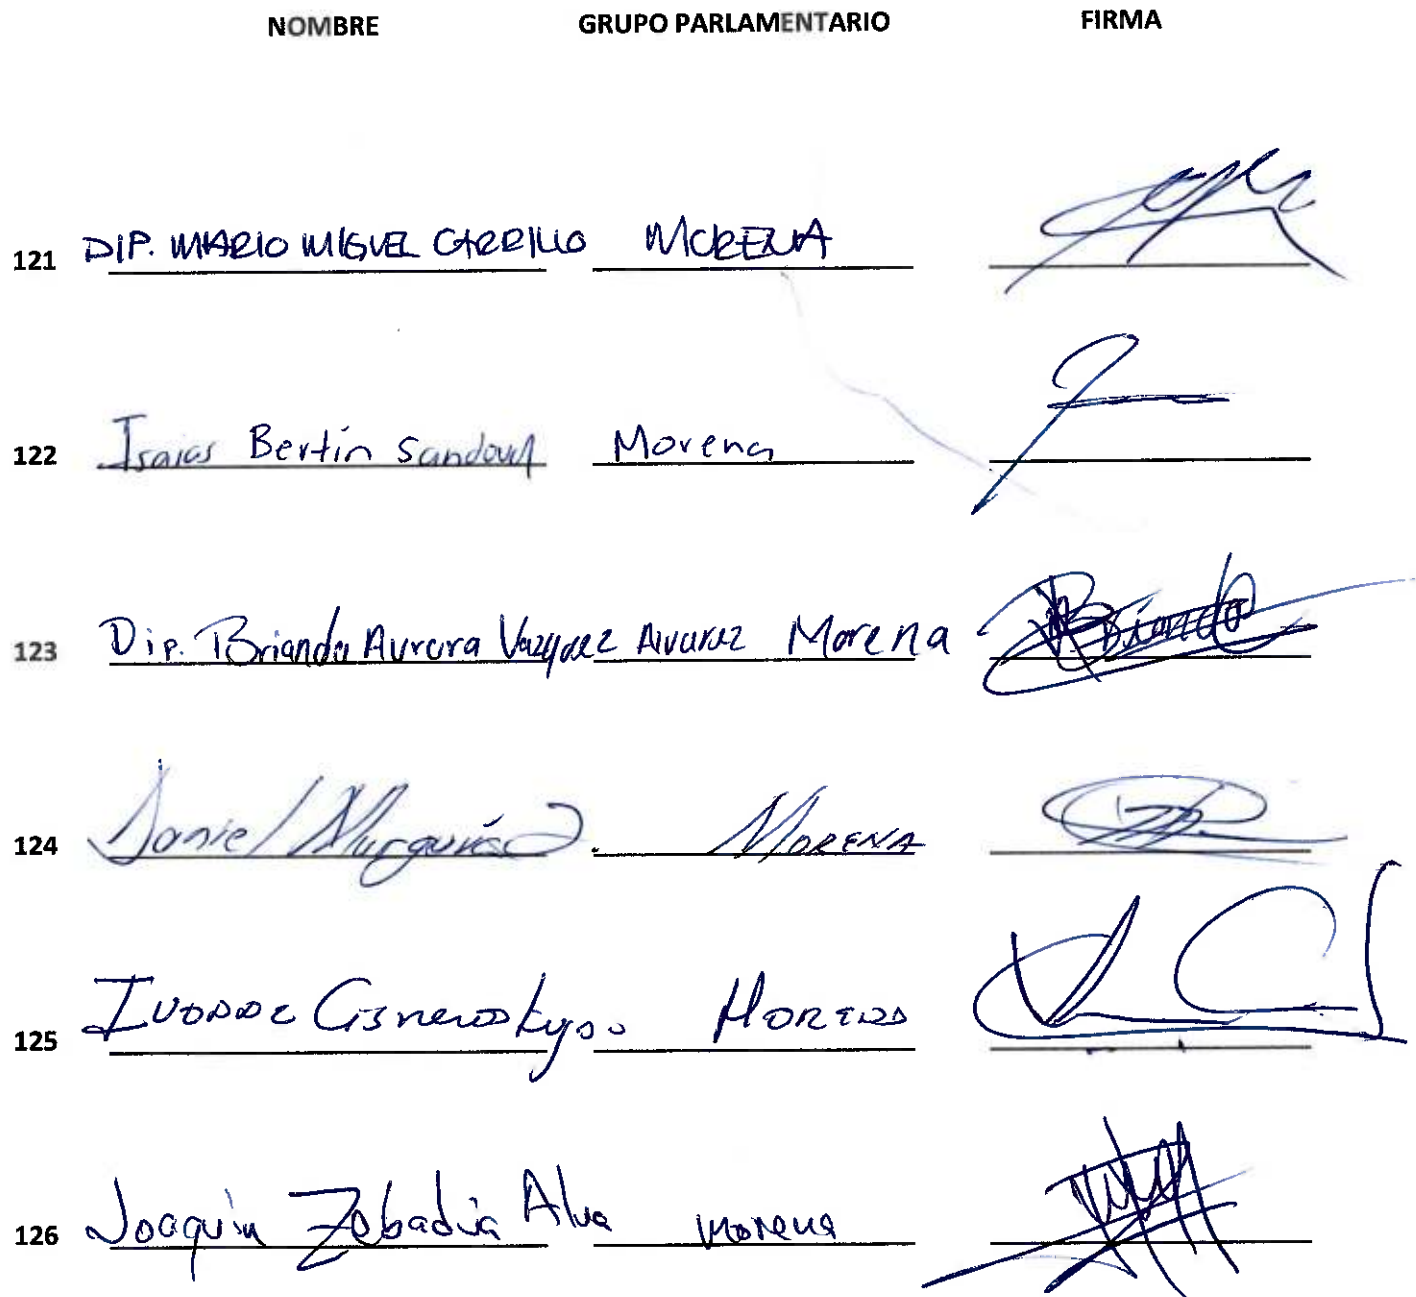 NOMBRE GRUPO PARLAMENTARIO FIRMA
121 DIP. MARIO MIGUEL CARRILLO MORENA
122 Isaias Bertín Sandoval Morena
123 Dip. Brianda Aurora Vazquez Alvarez Morena Brianda
124 Daniel Murguía MORENA
125 Ivonne Cisneros Luján MORENA
126 Joaquín Zebadúa Alva morena